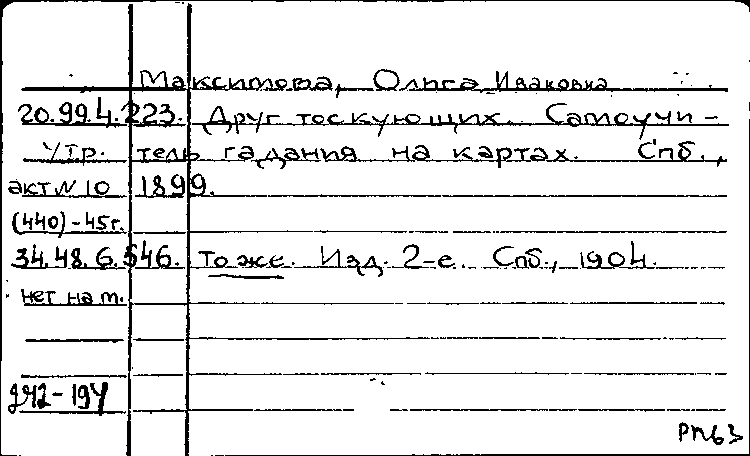 Максимова, Ольга Ивановна
20.99.4.223. Друг тоскующих. Самоучи-
утр. тель гадания на картах. Спб.,
акт № 10 1899.
(440)-45г.
34.48.6.546. То же. Изд. 2-е. Спб., 1904.
нет на м.
РПБЗ